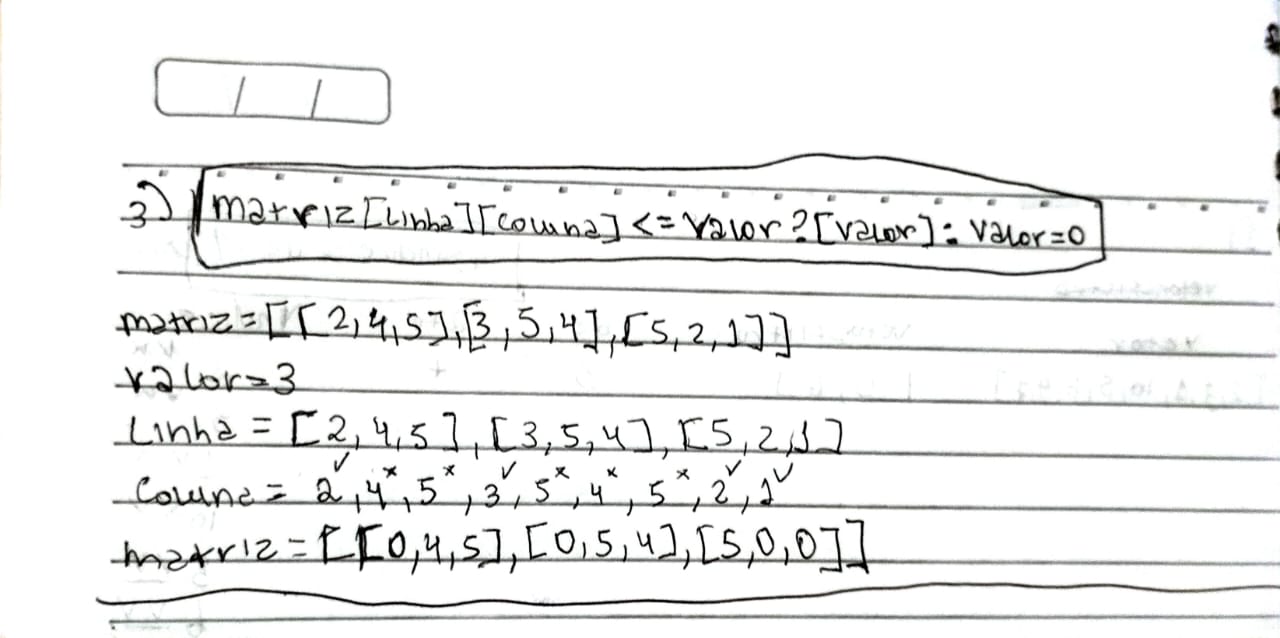 3) matriz[Linha][coluna] <= valor ? [valor] : valor=0
matriz=[[2,4,5],[3,5,4],[5,2,1]]
valor=3
Linha = [2,4,5], [3,5,4], [5,2,1]
Coluna = 2✓, 4×, 5×, 3✓, 5×, 4×, 5×, 2✓, 1✓
matriz=[[0,4,5],[0,5,4],[5,0,0]]